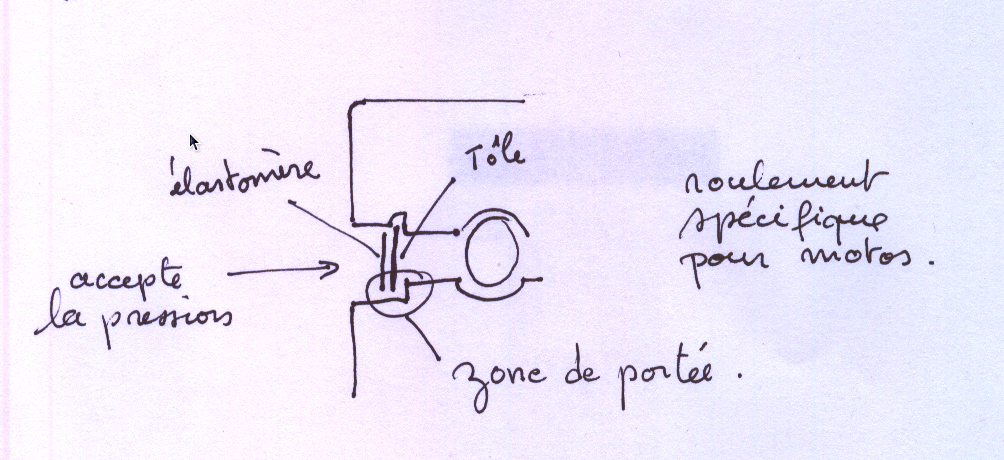 Tôle
élastomère
roulement
spécifique
pour motos.
accepte
la pression
zone de portée.